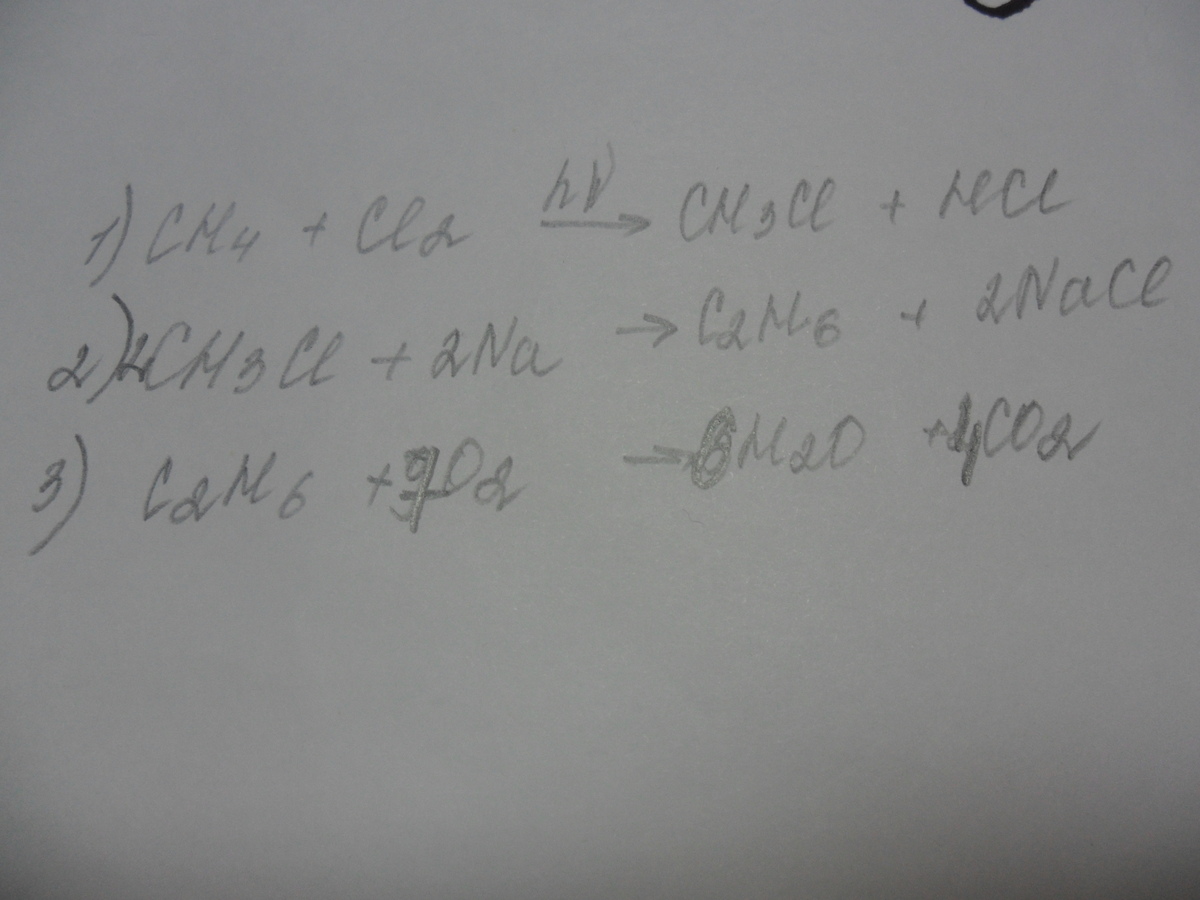 1) CH4 + Cl2 hν → CH3Cl + HCl
2) 2CH3Cl + 2Na → C2H6 + 2NaCl
3) C2H6 + 7O2 → 6H2O + 4CO2